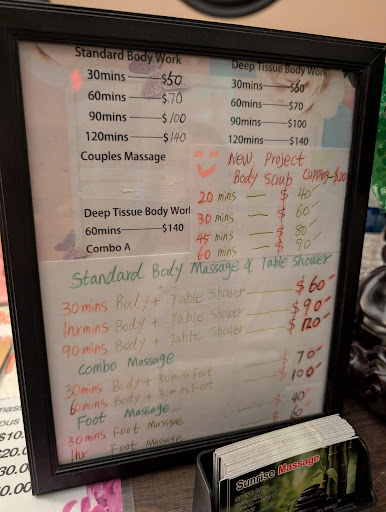 Standard Body Work
30mins $50
60mins $70
90mins $100
120mins $140
Couples Massage
Deep Tissue Body Work
60mins $140
Combo A
Deep Tissue Body Work
30mins $60
60mins $70
90mins $100
120mins $140
New Project
Body Scrub Cupping $20
20 mins $ 40
30 mins $ 60
45 mins $ 80
60 mins $ 90
Standard Body Massage & Table Shower
30mins Body + Table Shower $60
1hr mins Body + Table Shower $90
90mins Body + Table Shower $120
Combo Massage
30mins Body + 30mins Foot $ 70
60mins Body + 30mins Foot $ 100
Foot Massage
30mins Foot Massage $ 40
1hr Foot Massage 60
Sunrise Massage